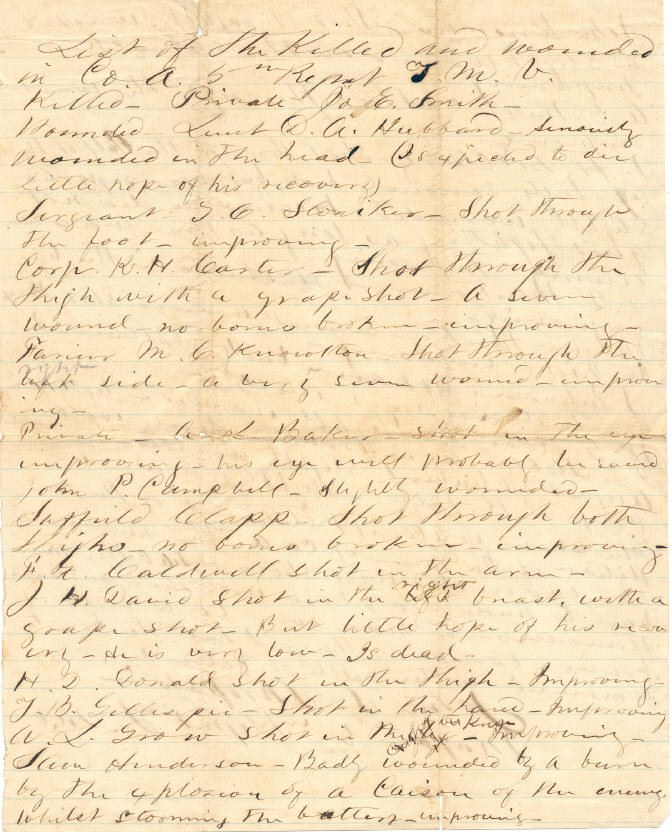 List of the Killed and wounded
in Co. A. 5th Regmt T. M. V.
Killed - Private Jo. E. Smith -
Wounded Lieut D. A. Hubbard - seriously
wounded in the head (Is expected to die
little hope of his recovery)
Sergeant T. C. Sloniker - Shot through
the foot - improving -
Corp. R. H. Carter - Shot through the
thigh with a grape shot - A severe
wound - no bones broken - improving -
Farier M. C. Knowlton Shot through the
right
left side - a very severe wound - improv
ing -
Private - A. S. Baker - shot in the eye
improving - his eye will probably be saved
John P. Campbell - slightly wounded -
Suffield Clapp - Shot through both
thighs - no bones broken - improving -
F. H. Caldwell shot in the arm -
right
J. H. David shot in the left breast, with a
grape shot - But little hope of his recov
ery - He is very low - Is dead -
H. D. Donald shot in the thigh - Improving -
T. B. Gillespie - Shot in the hand - Improving
knee
A. L. Grow shot in - Improving -
Sam Henderson - Badly wounded by a burn
by the explosion of a Caison of the enemy
whilst storming the battery - improving -